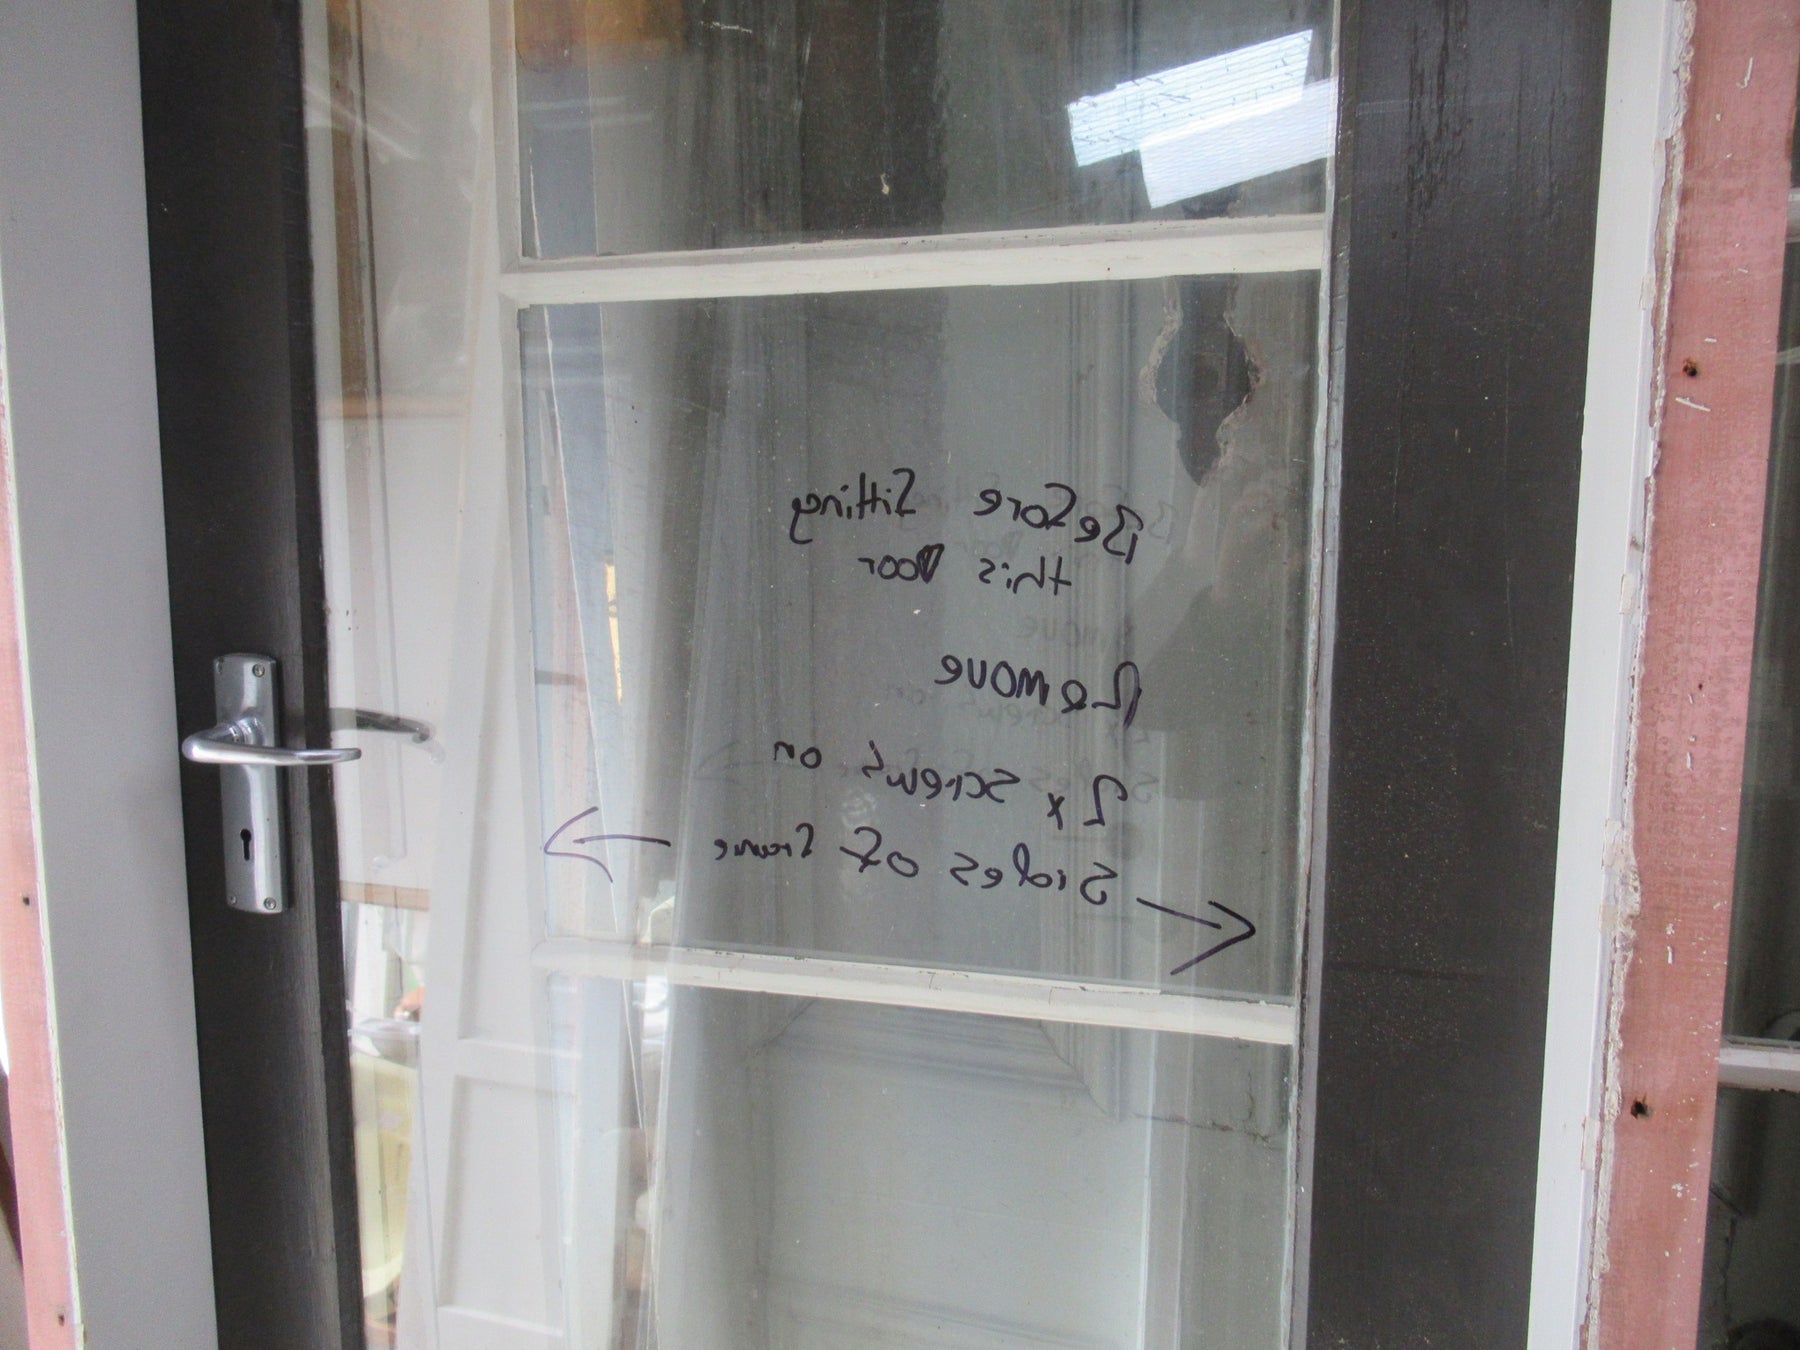 Before fitting
this Door
Remove
2x screws on
sides of frame